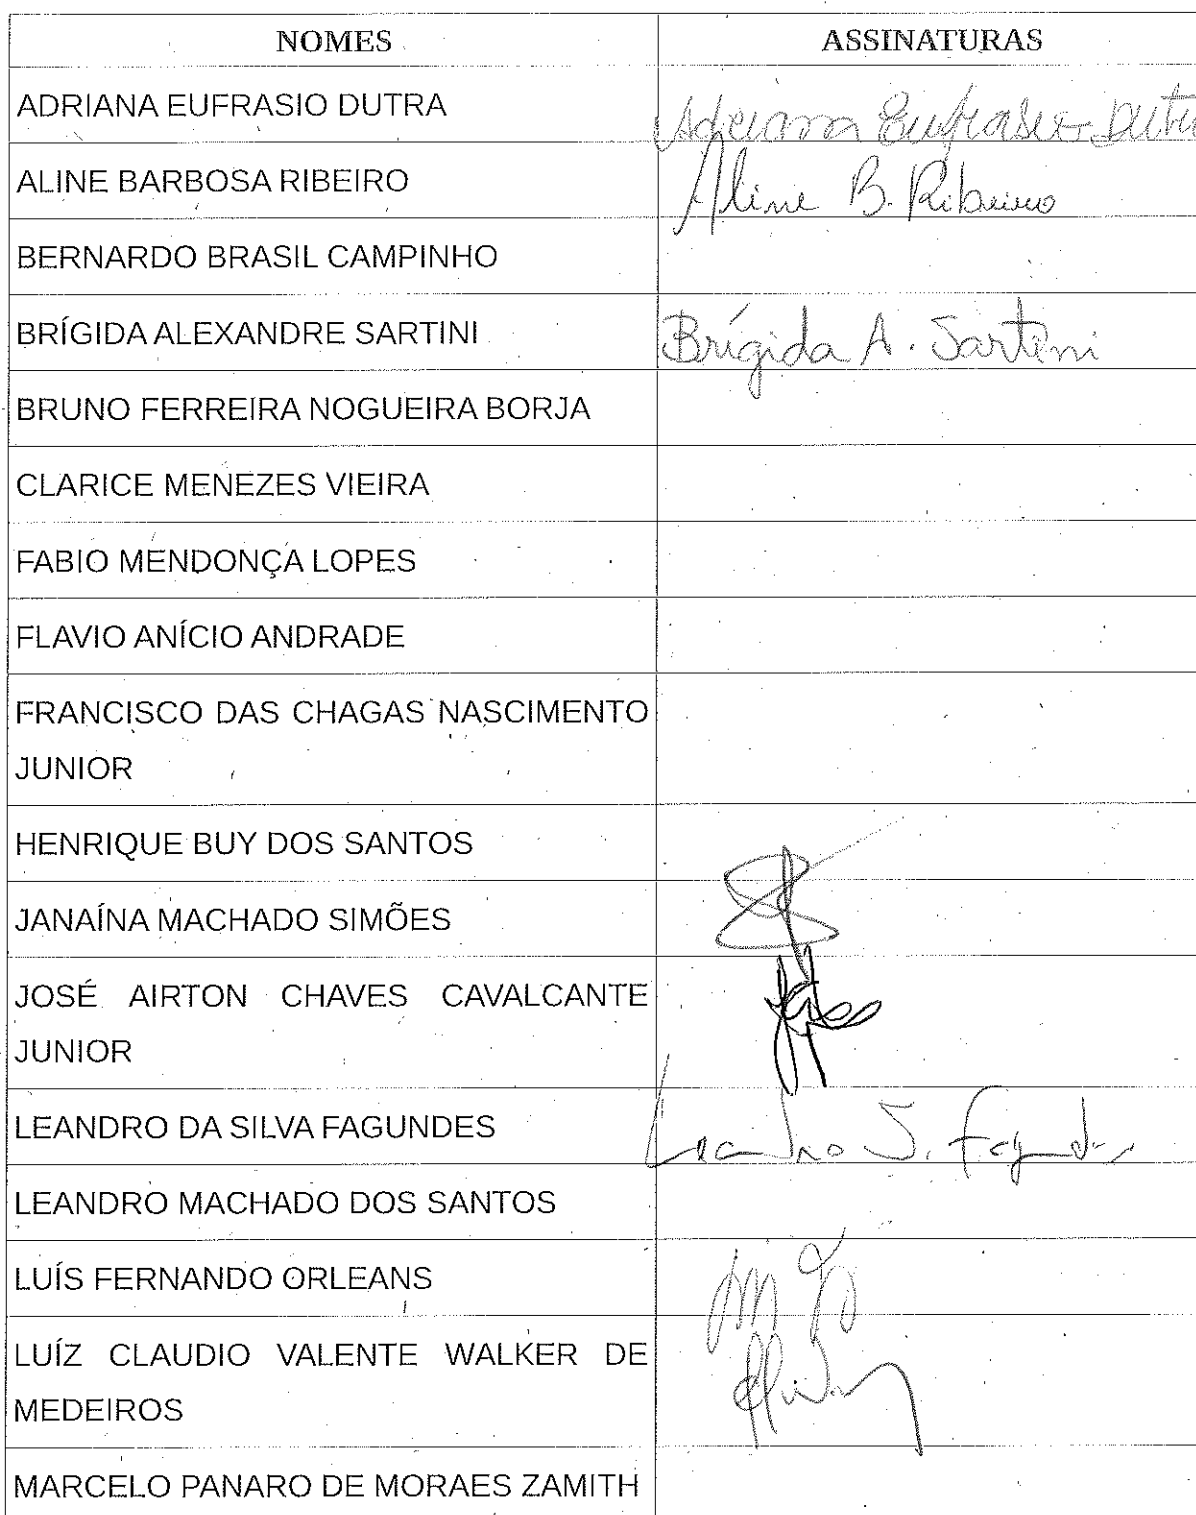 NOMES ASSINATURAS
ADRIANA EUFRASIO DUTRA Adriana Eufrasio Dutra
ALINE BARBOSA RIBEIRO Aline B. Ribeiro
BERNARDO BRASIL CAMPINHO
BRÍGIDA ALEXANDRE SARTINI Brígida A. Sartini
BRUNO FERREIRA NOGUEIRA BORJA
CLARICE MENEZES VIEIRA
FABIO MENDONÇA LOPES
FLAVIO ANÍCIO ANDRADE
FRANCISCO DAS CHAGAS NASCIMENTO
JUNIOR
HENRIQUE BUY DOS SANTOS
JANAÍNA MACHADO SIMÕES
JOSÉ AIRTON CHAVES CAVALCANTE
JUNIOR
LEANDRO DA SILVA FAGUNDES Leandro S. Fagundes
LEANDRO MACHADO DOS SANTOS
LUÍS FERNANDO ORLEANS
LUÍZ CLAUDIO VALENTE WALKER DE
MEDEIROS
MARCELO PANARO DE MORAES ZAMITH